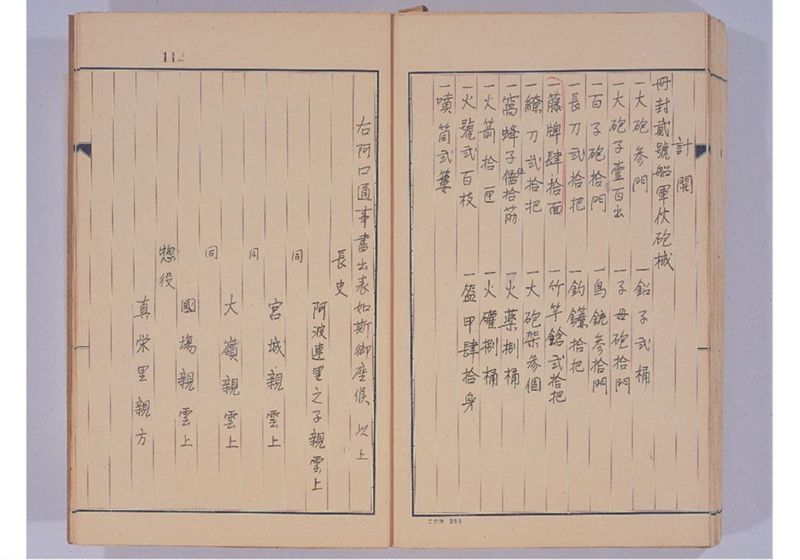 計開
冊封貳號船軍仗砲械
一大砲参門
一鉛子弍桶
一大砲子壹百出
一子母砲拾門
一百子砲拾門
一鳥銃参拾門
一長刀弍拾把
一釣鑓拾把
一籐牌肆拾面
一竹竿鎗弍拾把
一繚刀弍拾把
一大砲架参個
一窩蜂子 拾筋
一火藥捌桶
一火箭拾匣
一火礶捌桶
一火號弍百枝
一盔甲肆拾身
一噴筒弍簍
112
右阿口通事書出表如斯御座候 以上
長史
阿波連里之子親雲上
同
宮城親雲上
同
大嶺親雲上
同
國場親雲上
惣役
真栄里親方